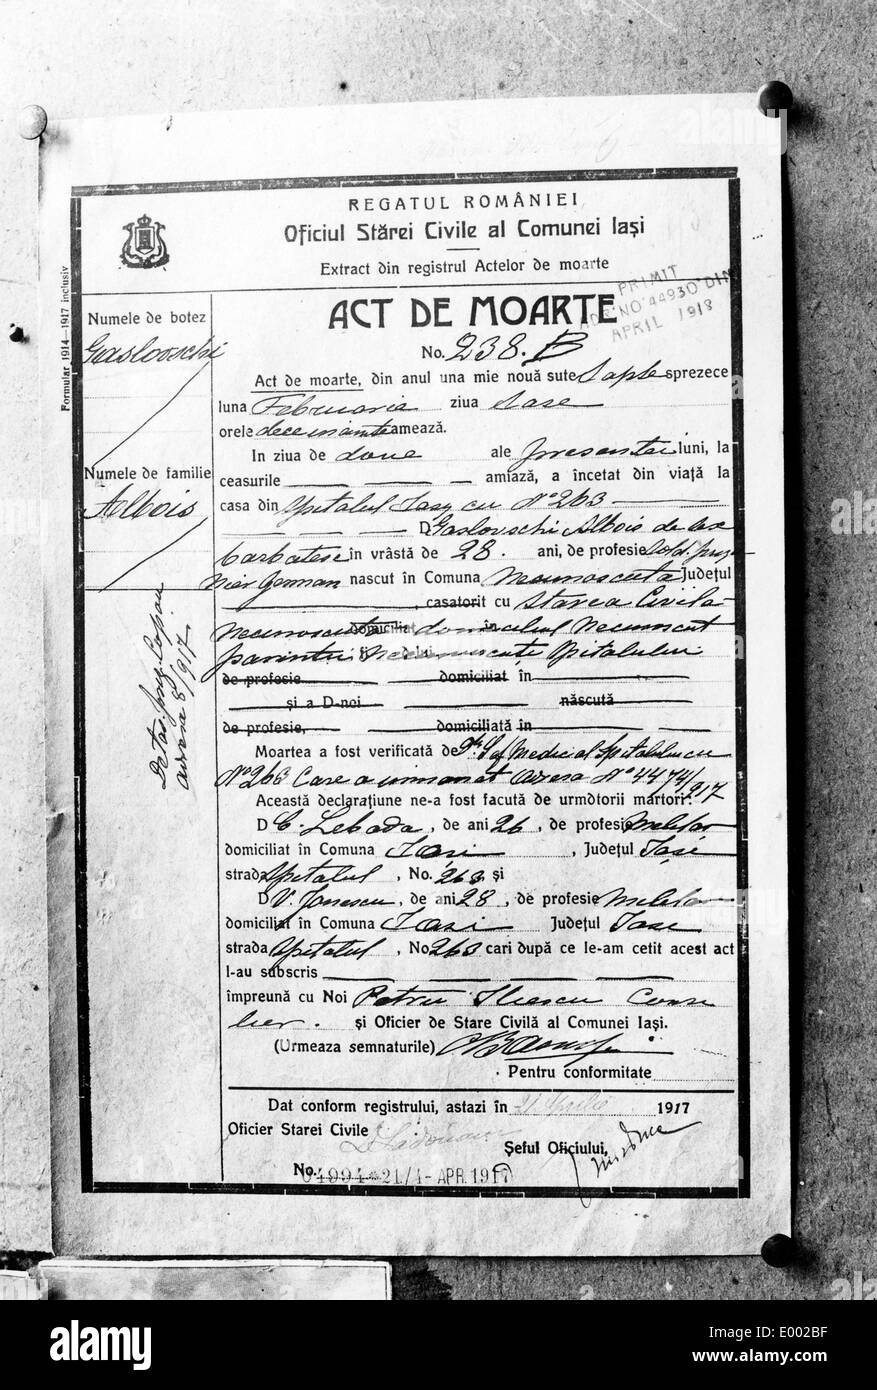 REGATUL ROMÂNIEI
Oficiul Stărei Civile al Comunei Iași
Extract din registrul Actelor de moarte
PRIMIT
NO 44930 DIN
APRIL 1918
Formular 1914—1917 inclusiv
Numele de botez
Gaslovschi
Numele de familie
Albois
917
ACT DE MOARTE
No. 238. B
Act de moarte, din anul una mie nouă sute Sapte sprezece
luna Februarie ziua sase
orele dece inainte amează.
In ziua de doue ale presentei luni, la
ceasurile — — — amiază, a încetat din viață la
casa din Spitalul Iași cu No 263
D Gaslovschi Albois de sex
barbatesc în vrâstă de 28. ani, de profesie Sold. prizo-
nier German nascut în Comuna Necunoscuta Județul
, casatorit cu Starea Civila
Necunoscuta domiciliat domiciliul în Necunoscut
parintii Necunoscute Spitalului
de profesie domiciliat în
și a D-noi născută
de profesie, domiciliată în
Moartea a fost verificată de Medic al Spitalului cu
No 263 Care a No 4474/917
Această declarațiune ne-a fost facută de urmdtorii martori:
D C. Lebada, de ani 26, de profesie Militar
domiciliat în Comuna Iasi, Județul Iasi
strada Spitalul, No. 263 și
D V. Ionescu, de ani 28, de profesie Militar
domiciliat în Comuna Iasi Județul Iasi
strada Spitalul, No 263 cari după ce le-am cetit acest act
l-au subscris
împreună cu Noi Petru Iliescu Consi
lier. și Oficier de Stare Civilă al Comunei Iași.
(Urmeaza semnaturile)
Pentru conformitate
Dat conform registrului, astazi în 21 Aprilie 1917
Oficier Starei Civile
Șeful Oficiului,
No. 04994 * 21/4 - APR. 1917
alamy
Image ID: E002BF
www.alamy.com